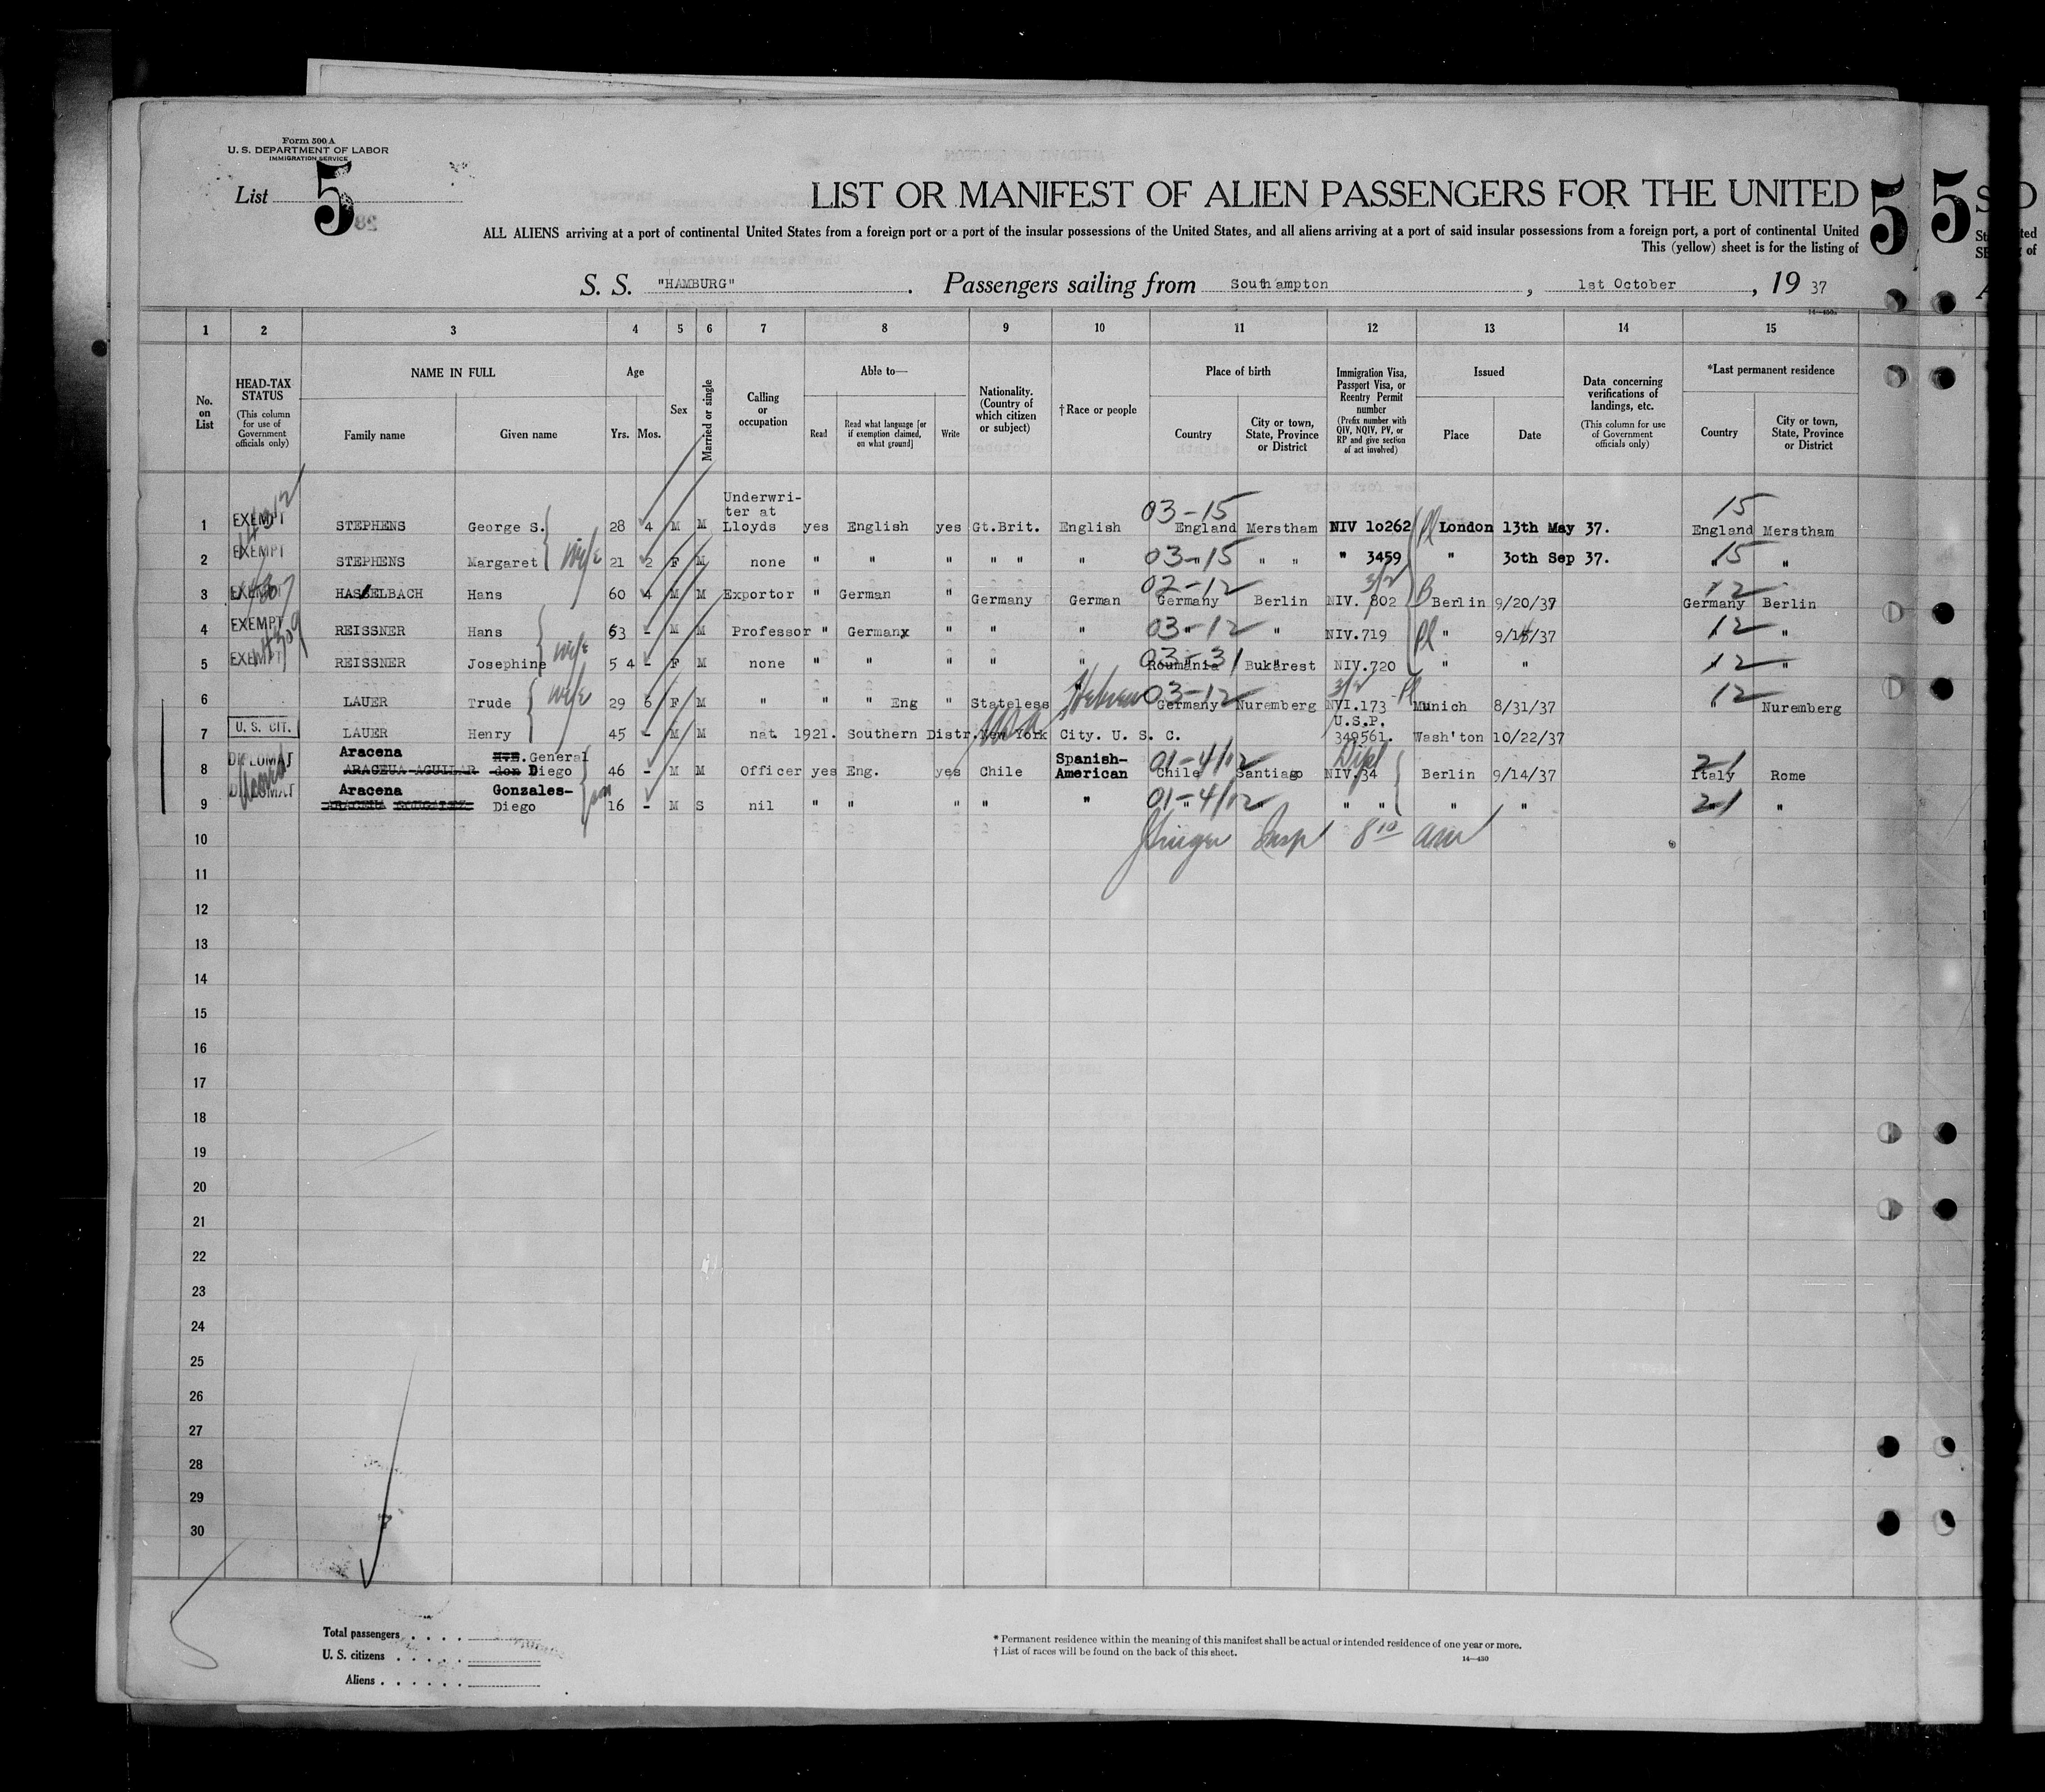 Form 500 A
U. S. DEPARTMENT OF LABOR
IMMIGRATION SERVICE
List 5
LIST OR MANIFEST OF ALIEN PASSENGERS FOR THE UNITED 5 5
ALL ALIENS arriving at a port of continental United States from a foreign port or a port of the insular possessions of the United States, and all aliens arriving at a port of said insular possessions from a foreign port, a port of continental United
This (yellow) sheet is for the listing of
S. S. "HAMBURG" . Passengers sailing from Southampton , 1st October , 19 37
1 2 3 4 5 6 7 8 9 10 11 12 13 14 15
No. on List
HEAD-TAX STATUS (This column for use of Government officials only)
NAME IN FULL Family name Given name
Age Yrs. Mos.
Sex
Married or single
Calling or occupation
Able to— Read Read what language [or if exemption claimed, on what ground] Write
Nationality. (Country of which citizen or subject)
†Race or people
Place of birth Country City or town, State, Province or District
Immigration Visa, Passport Visa, or Reentry Permit number (Prefix number with QIV, NQIV, PV, or RP and give section of act involved)
Issued Place Date
Data concerning verifications of landings, etc. (This column for use of Government officials only)
*Last permanent residence Country City or town, State, Province or District
1 EXEMPT STEPHENS George S. 28 4 M M Underwri-ter at Lloyds yes English yes Gt.Brit. English 03-15 England Merstham NIV 10262 London 13th May 37. 15 England Merstham
2 EXEMPT STEPHENS Margaret wife 21 2 F M none " " " " " " 03-15 " " " " 3459 " 30th Sep 37. 15 " "
3 EXEMPT HASSELBACH Hans 60 4 M M Exportor " German " Germany German 02-12 Germany Berlin 3/2 NIV. 802 B Berlin 9/20/37 12 Germany Berlin
4 EXEMPT REISSNER Hans 63 - M M Professor " German " " " 03-12 " " NIV.719 Pl " 9/15/37 12 " "
5 EXEMPT REISSNER Josephine wife 54 - F M none " " " " " 03-31 Roumania Bukarest NIV.720 " " 12 " "
6 LAUER Trude wife 29 6 F M " " " Eng " Stateless Hebrew 03-12 Germany Nuremberg 3/2 NVI.173 Pl Munich 8/31/37 12 " Nuremberg
7 U. S. CIT. LAUER Henry 45 - M M nat 1921. Southern Distr.New York City. U. S. C. U.S.P. 349561. Wash'ton 10/22/37
8 DIPLOMAT Aracena ARACEUA-AGUILAR H.E. General don Diego 46 - M M Officer yes Eng. yes Chile Spanish-American 01-4/12 Chile Santiago Dipl NIV.34 Berlin 9/14/37 21 Italy Rome
9 DIPLOMAT Aracena Gonzales-Diego son 16 - M S nil " " " " " 01-4/12 " " " " " " 21 "
10 Insp 8 10 am
11
12
13
14
15
16
17
18
19
20
21
22
23
24
25
26
27
28
29
30
Total passengers . . . .
U. S. citizens . . . . .
Aliens . . . . . .
* Permanent residence within the meaning of this manifest shall be actual or intended residence of one year or more.
† List of races will be found on the back of this sheet.
14—430